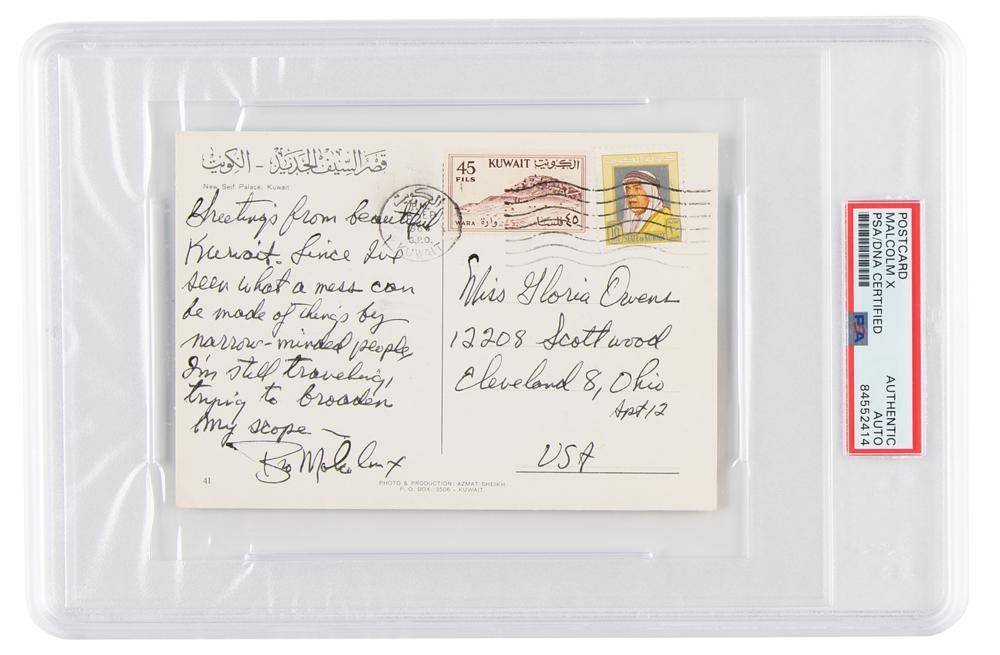 قصر السيف الجديد - الكويت
New Seif Palace, Kuwait
Greetings from beautiful
Kuwait. Since I've
seen what a mess can
be made of things by
narrow-minded people,
I'm still traveling,
trying to broaden
my scope —
Bro Malcolm X
41
45
FILS
KUWAIT الكويت
WARA وارة
فلسا ٤٥
الكويت
G.P.O.
KUWAIT
10
STATE OF KUWAIT
Miss Gloria Owens
12208 Scottwood
Cleveland 8, Ohio
Apt 12
USA
PHOTO & PRODUCTION: AZMAT SHEIKH
P. O. BOX: 3506 - KUWAIT.
POSTCARD
MALCOLM X
PSA/DNA CERTIFIED
PSA
AUTHENTIC
AUTO
84552414